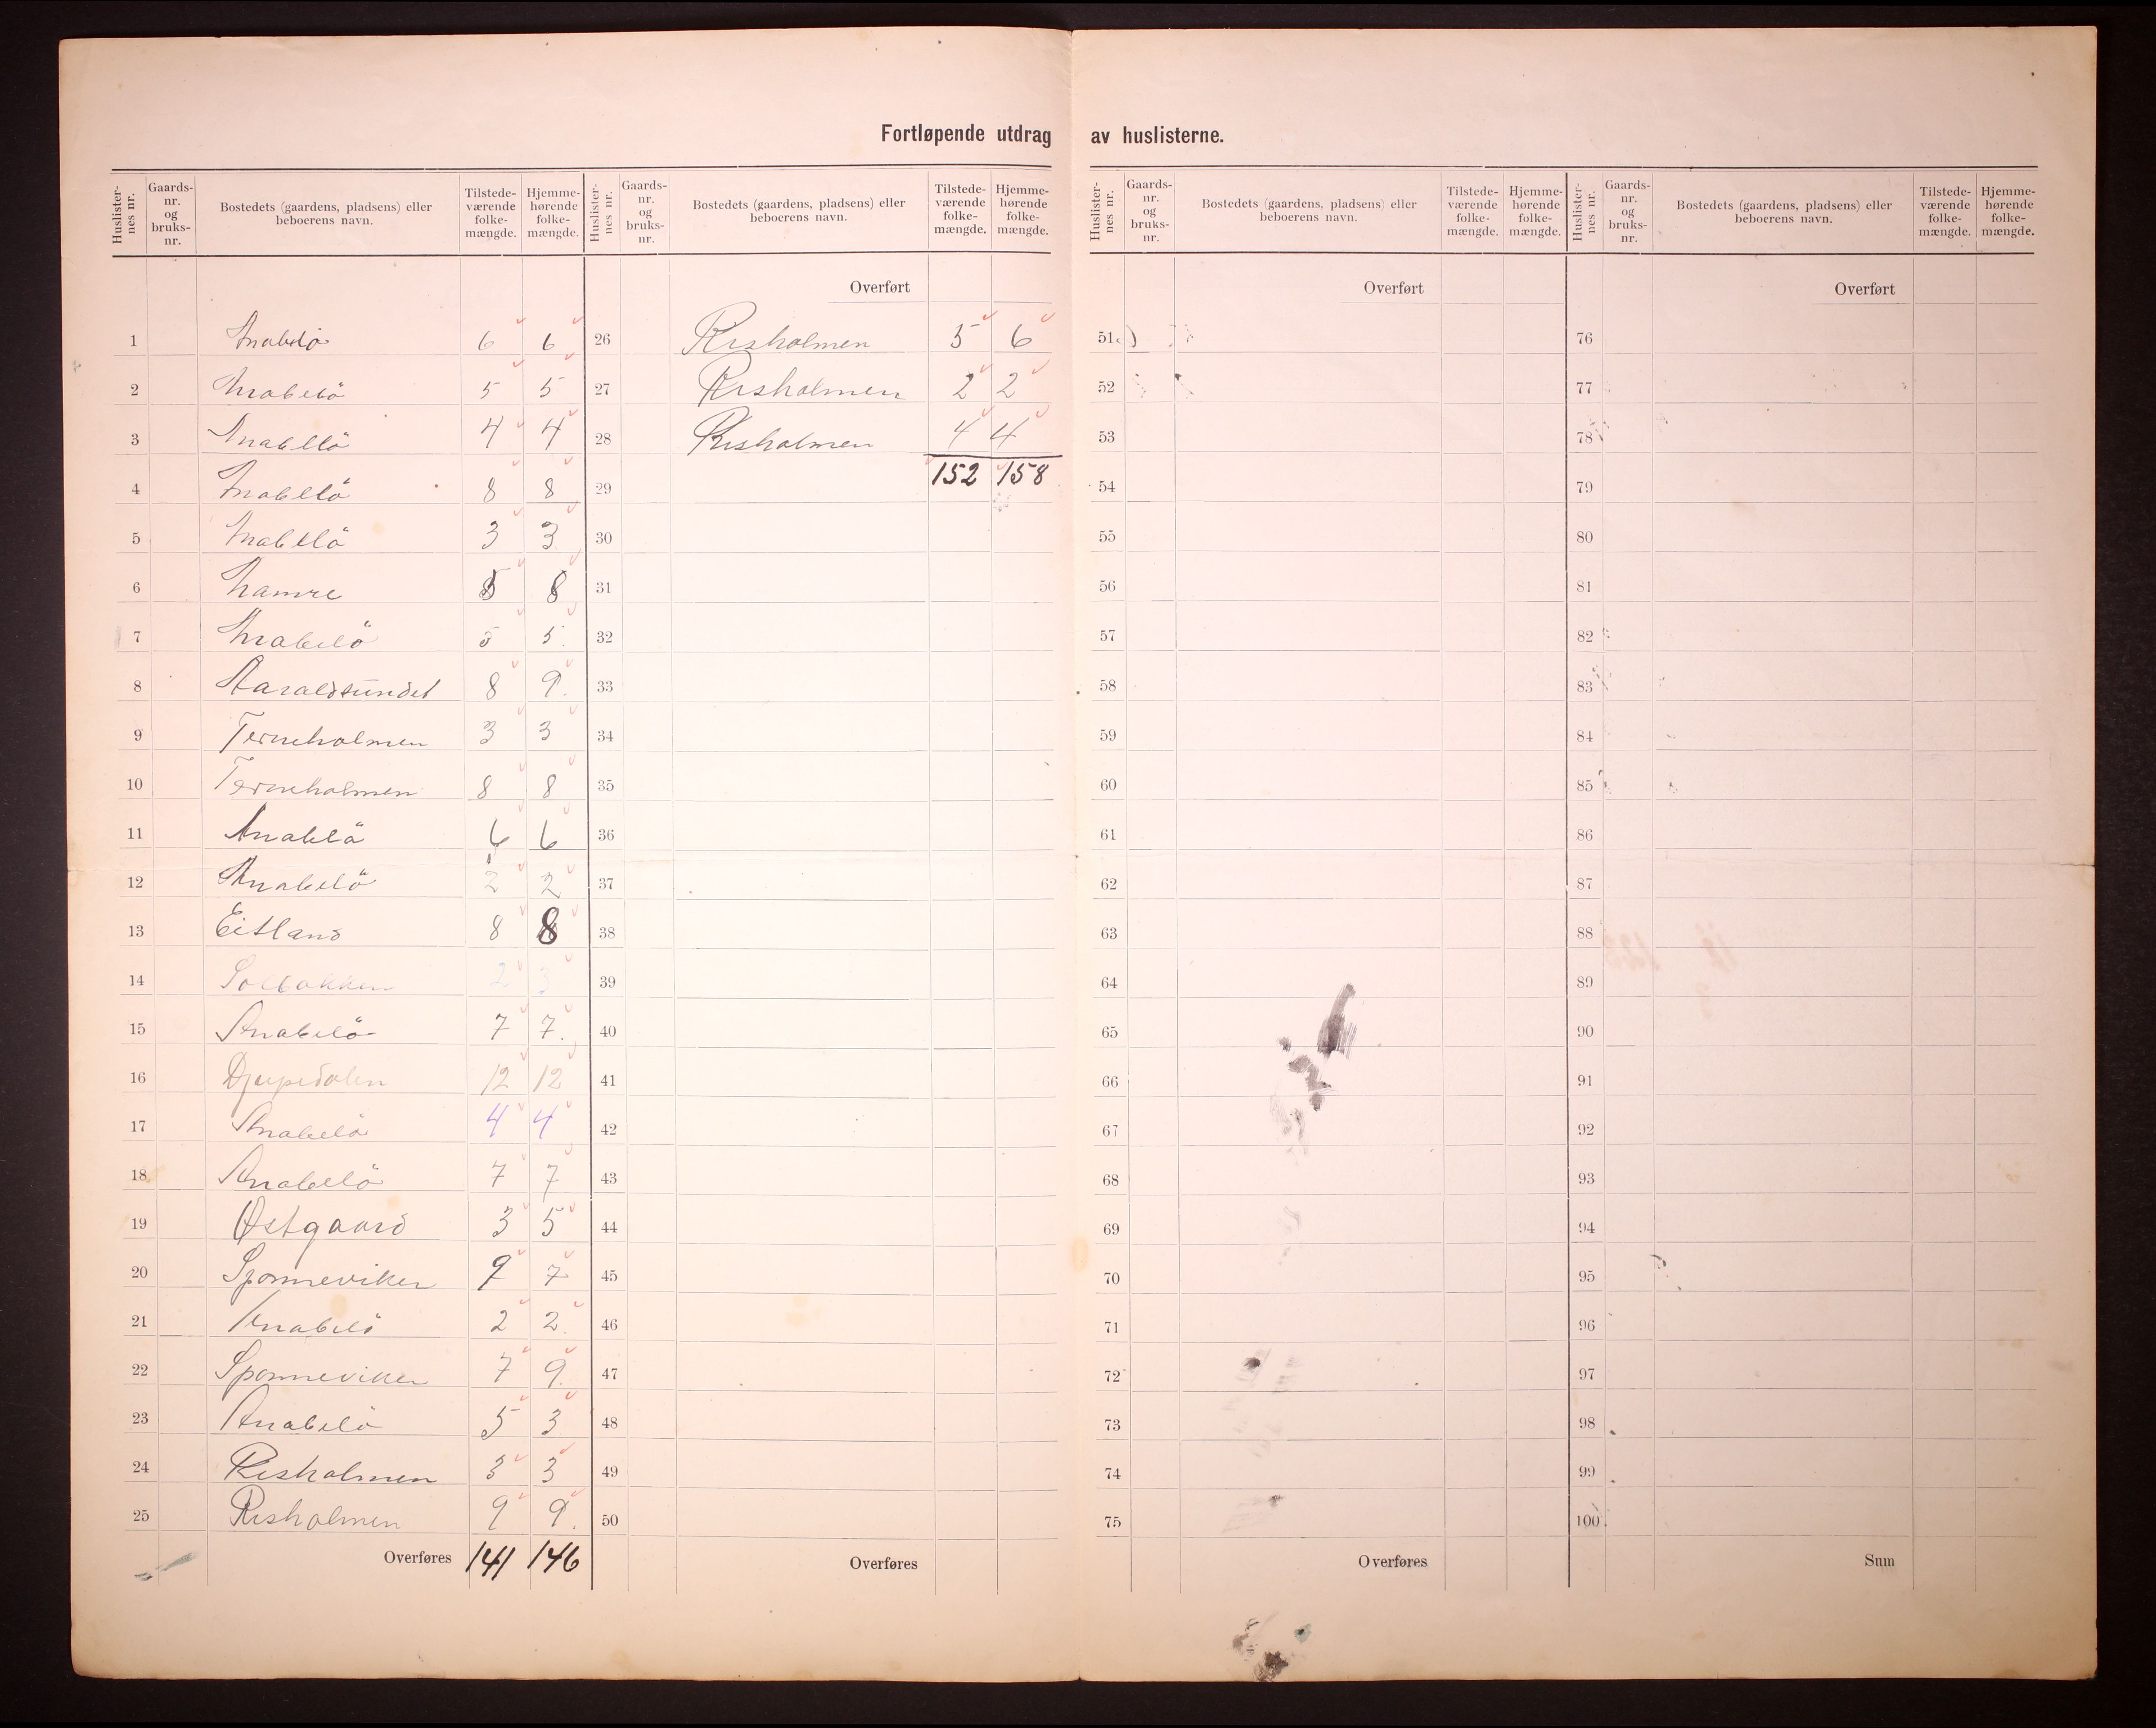 Fortløpende utdrag av huslisterne.
Huslisternes nr. Gaards-nr. og bruks-nr. Bostedets (gaardens, pladsens) eller beboerens navn. Tilstede-værende folke-mængde. Hjemme-hørende folke-mængde.
1 Anabelö 6 6
2 Anabelö 5 5
3 Anabelö 4 4
4 Anabelö 8 8
5 Anabelö 3 3
6 Hamre 8
7 Anabelö 5 5
8 Haraldsundet 8 9
9 Terneholmen 3 3
10 Terneholmen 8 8
11 Anabelö 6 6
12 Anabelö 2 2
13 Eitland 8 8
14 Solbakken 2 3
15 Anabelö 7 7
16 Djupedalen 12 12
17 Anabelö 4 4
18 Anabelö 7 7
19 Østgaard 3 5
20 Sponneviken 9 7
21 Anabelö 2 2
22 Sponneviken 7 9
23 Anabelö 5 3
24 Risholmen 3 3
25 Risholmen 9 9
Overføres 141 146
Huslisternes nr. Gaards-nr. og bruks-nr. Bostedets (gaardens, pladsens) eller beboerens navn. Tilstede-værende folke-mængde. Hjemme-hørende folke-mængde.
Overført
26 Risholmen 5 6
27 Risholmen 2 2
28 Risholmen 4 4
29 152 158
30
31
32
33
34
35
36
37
38
39
40
41
42
43
44
45
46
47
48
49
50
Overføres
Huslisternes nr. Gaards-nr. og bruks-nr. Bostedets (gaardens, pladsens) eller beboerens navn. Tilstede-værende folke-mængde. Hjemme-hørende folke-mængde.
Overført
51
52
53
54
55
56
57
58
59
60
61
62
63
64
65
66
67
68
69
70
71
72
73
74
75
Overføres
Huslisternes nr. Gaards-nr. og bruks-nr. Bostedets (gaardens, pladsens) eller beboerens navn. Tilstede-værende folke-mængde. Hjemme-hørende folke-mængde.
Overført
76
77
78
79
80
81
82
83
84
85
86
87
88
89
90
91
92
93
94
95
96
97
98
99
100
Sum